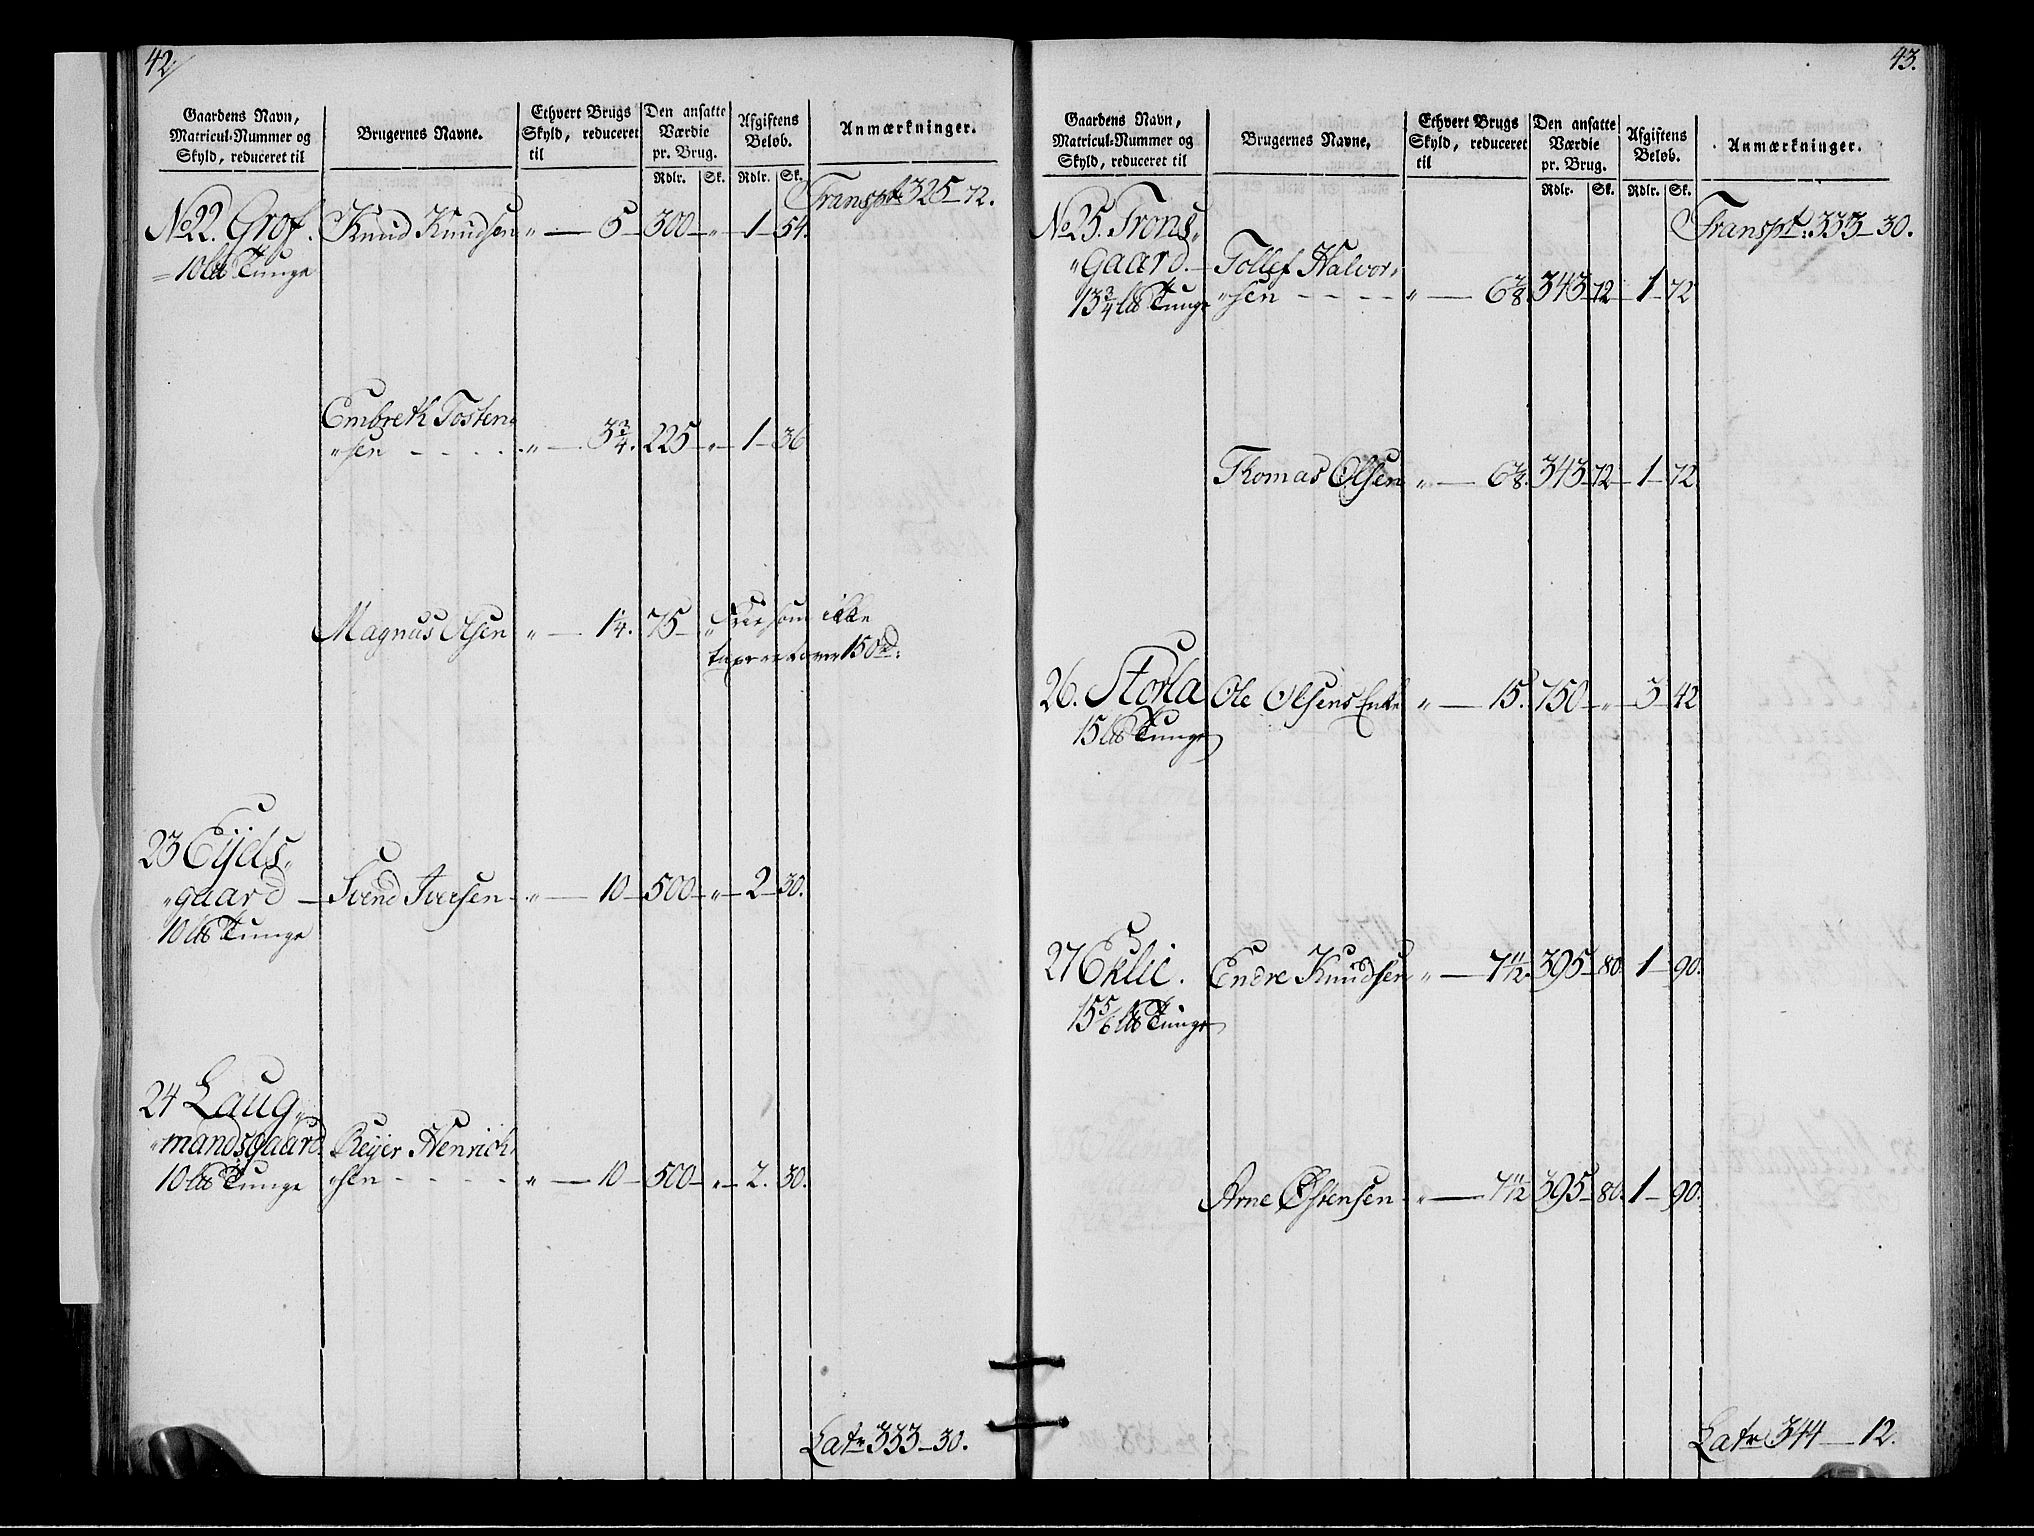 42/
Gaardens Navn,
Matricul-Nummer og
Skyld, reduceret til
Brugernes Navne.
Ethvert Brugs
Skyld, reduceret
til
Den ansatte
Værdie
pr. Brug.
Afgiftens
Beløb.
Anmærkninger.
Rdlr. Sk. Rdlr. Sk.
Transpt 325-72.
No 22. Grof. Knud Knudsen " — 5 — 300 — " — 1 — 54.
10 Tunge
Embreth Tosten-
"sen - - - - " — 3 3/4. 225 — " — 1 — 36
Magnus Olsen " — 1 1/4. 75 — " Frie som ikke
taxeret over 150
23 Eijds-
"gaard — Svend Iversen - " — 10 — 500 — " — 2 — 30.
10 Tunge
24 Laug-
"mandsgaard Reijer Henrich-
10 Tunge "sen - - - - " — 10 — 500 — " — 2. 30.
Latr 333-30.
43.
Gaardens Navn,
Matricul-Nummer og
Skyld, reduceret til
Brugernes Navne.
Ethvert Brugs
Skyld, reduceret
til
Den ansatte
Værdie
pr. Brug.
Afgiftens
Beløb.
Anmærkninger.
Rdlr. Sk. Rdlr. Sk.
Transpt: 333-30.
No 25. Troms-
"gaard. — Tollef Halvor-
13 3/4 Tunge "sen - - - - " — 6 7/8. 343 — 72 — 1 — 72
Thomas Olsen " — 6 7/8. 343 — 72 — 1 — 72.
26. Storla Ole Olsens Enke " — 15. 750 — " — 3 — 42
15 Tunge
27 Eklie. Endre Knudsen " — 7 11/12. 395 — 80. 1 — 90.
15 5/6 Tunge
Arne Østensen " — 7 11/12 395 — 80. 1 — 90.
Latr 344 — 12.